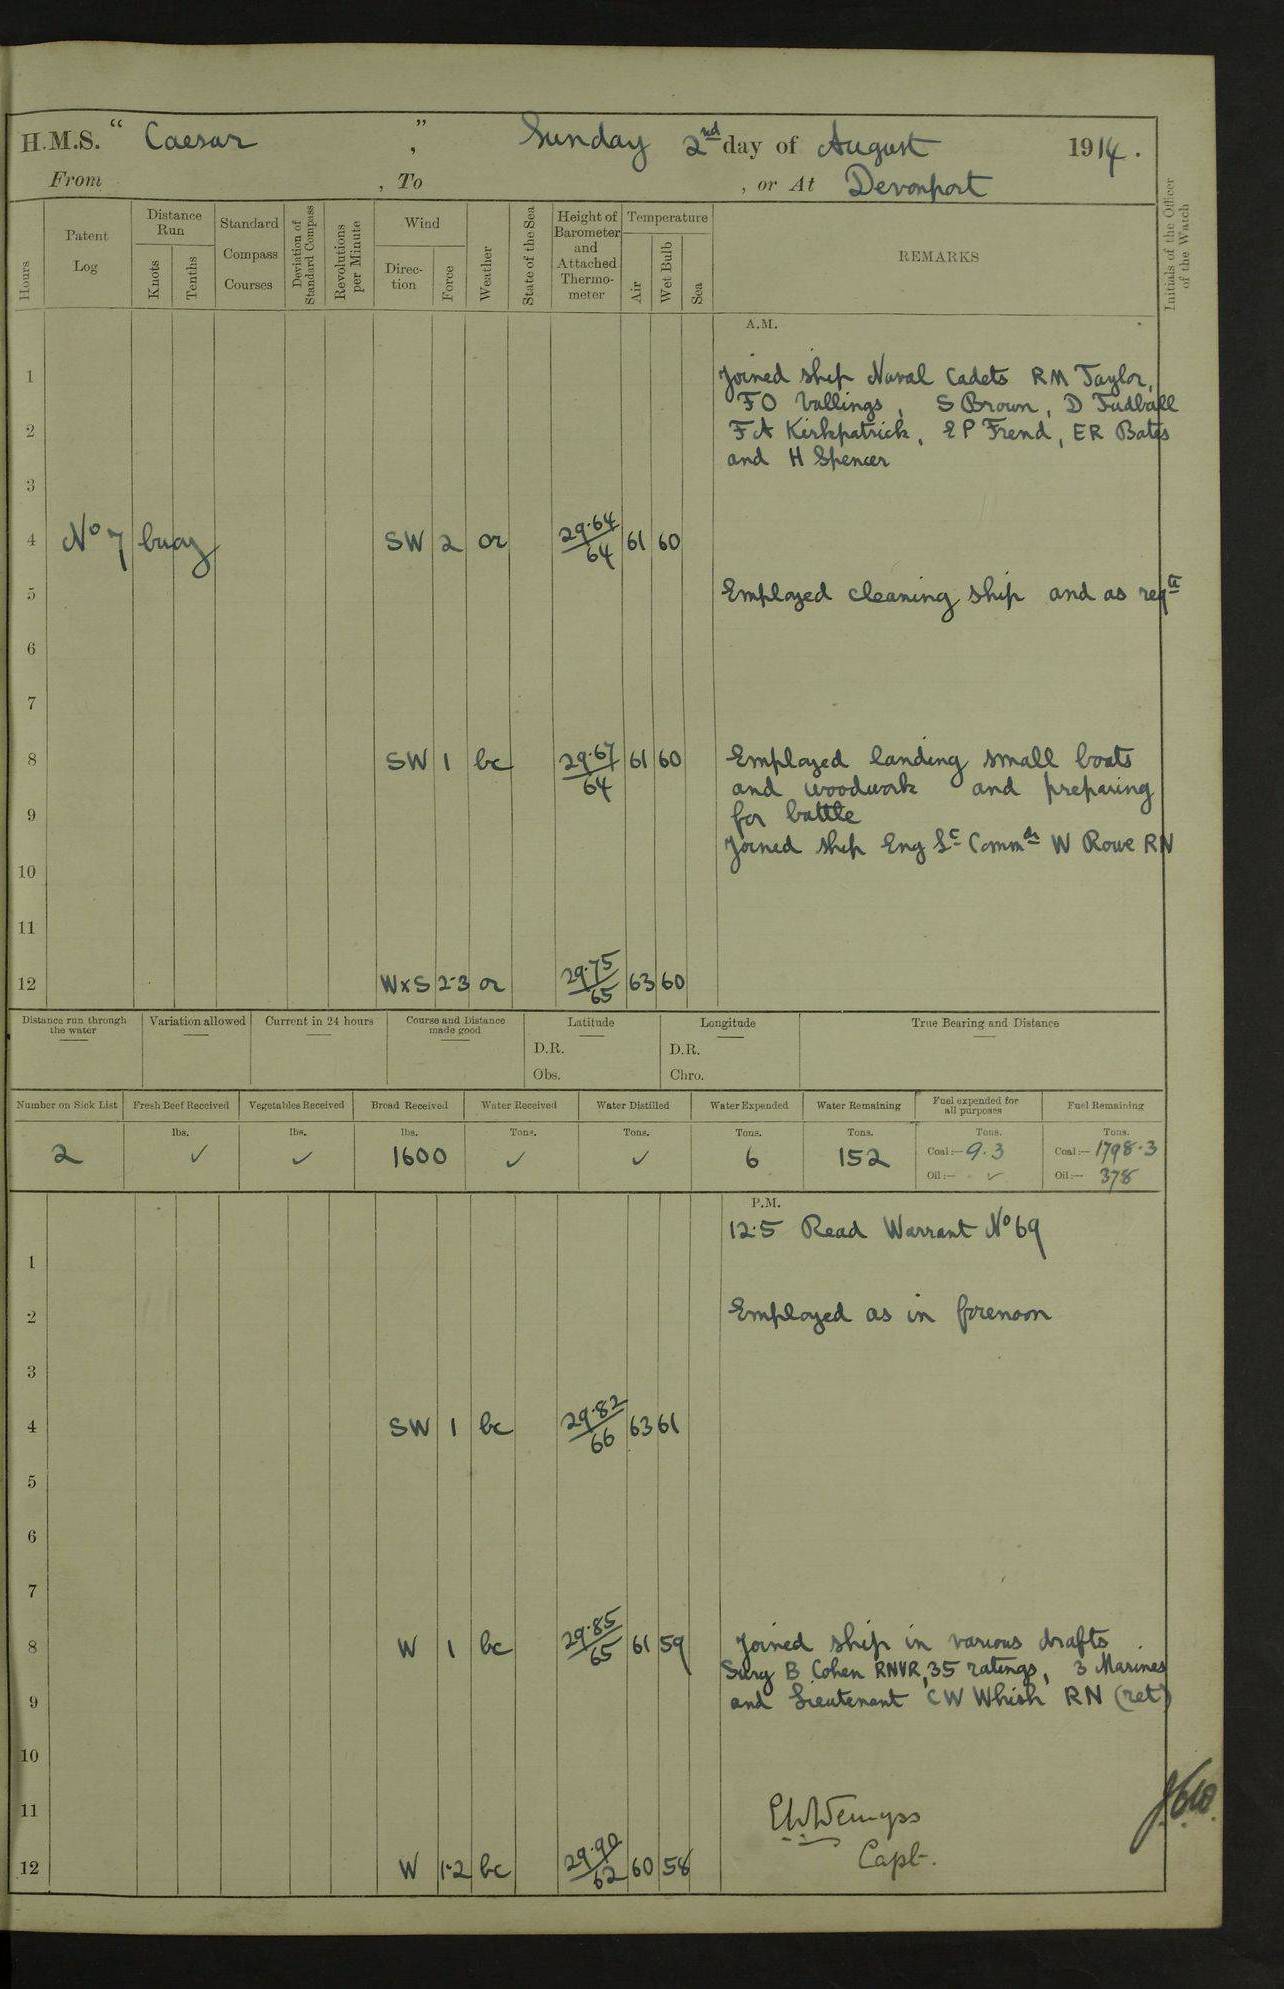 H.M.S. “ Caesar ” , Sunday 2nd day of August 1914.
From , To , or At Devonport
Hours
Patent Log
Distance Run
Knots
Tenths
Standard Compass Courses
Deviation of Standard Compass
Revolutions per Minute
Wind
Direc-tion
Force
Weather
State of the Sea
Height of Barometer and Attached Thermo-meter
Temperature
Air
Wet Bulb
Sea
REMARKS
Initials of the Officer of the Watch
A.M.
1 Joined ship Naval Cadets RM Taylor,
FO Vallings, S Brown, D Tudball
2 FA Kirkpatrick, EP Frend, ER Bates
and H Spencer
3
4 No 7 buoy SW 2 or 29.64/64 61 60
5 Employed cleaning ship and as reqte
6
7
8 SW 1 bc 29.67/64 61 60 Employed landing small boats
and woodwork and preparing
9 for battle
Joined ship Eng Lt Commdr W Rowe RN
10
11
12 WxS 2-3 or 29.75/65 63 60
Distance run through the water
Variation allowed
Current in 24 hours
Course and Distance made good
Latitude
D.R.
Obs.
Longitude
D.R.
Chro.
True Bearing and Distance
Number on Sick List Fresh Beef Received Vegetables Received Bread Received Water Received Water Distilled Water Expended Water Remaining Fuel expended for all purposes Fuel Remaining
lbs. lbs. lbs. Tons. Tons. Tons. Tons. Tons. Tons.
2 ✓ ✓ 1600 ✓ ✓ 6 152 Coal:— 9.3 Coal:— 1798.3
Oil:— ✓ Oil:— 378
P.M.
12.5 Read Warrant No 69
1
2 Employed as in forenoon
3
4 SW 1 bc 29.82/66 63 61
5
6
7
8 W 1 bc 29.85/65 61 59 Joined ship in various drafts
Surg B Cohen RNVR, 35 ratings, 3 Marines
9 and Lieutenant CW Whish RN (ret)
10
11 EWWemyss
12 W 1-2 bc 29.90/62 60 58 Capt.